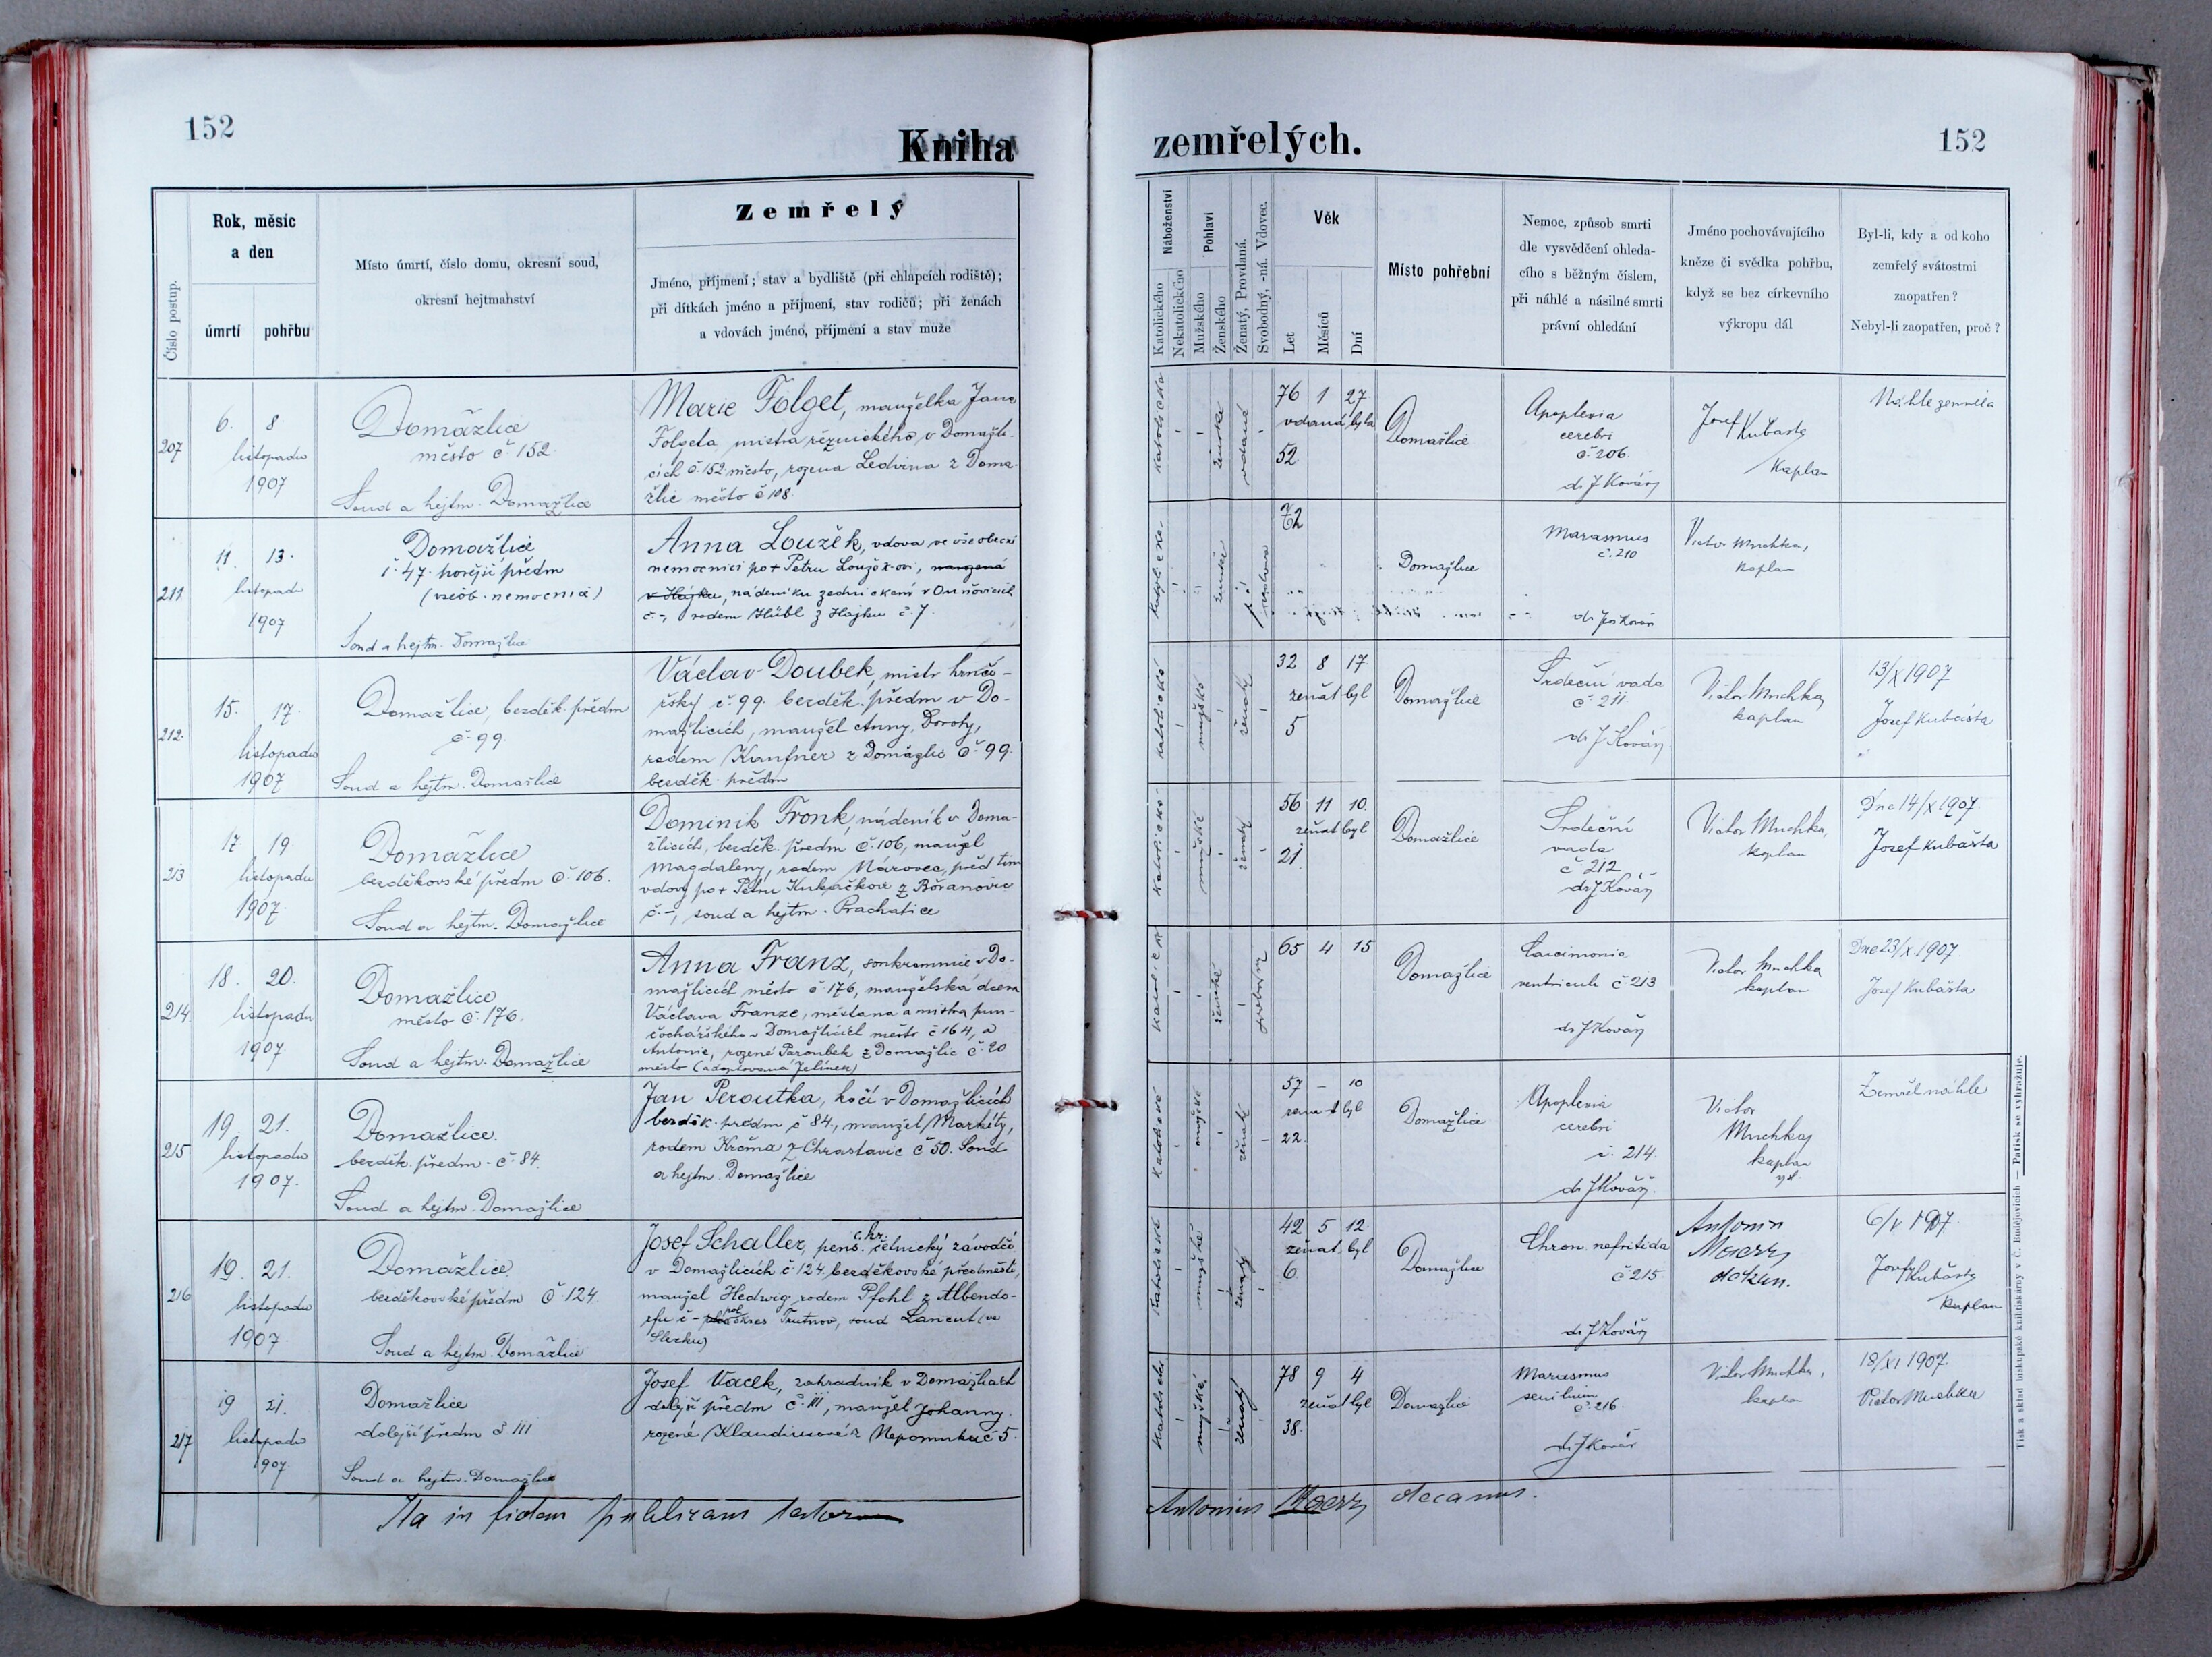 152
Kniha
zemřelých.
152
Číslo postup.
Rok, měsíc
a den
úmrtí
pohřbu
Místo úmrtí, číslo domu, okresní soud,
okresní hejtmanství
Zemřelý
Jméno, příjmení; stav a bydliště (při chlapcích rodiště);
při dítkách jméno a příjmení, stav rodičů; při ženách
a vdovách jméno, příjmení a stav muže
Náboženství
Katolického
Nekatolického
Pohlaví
Mužského
Ženského
Ženatý, Provdaná.
Svobodný, -ná. Vdovec.
Věk
Let
Měsíců
Dní
Místo pohřební
Nemoc, způsob smrti
dle vysvědčení ohleda-
cího s běžným číslem,
při náhlé a násilné smrti
právní ohledání
Jméno pochovávajícího
kněze či svědka pohřbu,
když se bez církevního
výkropu dál
Byl-li, kdy a od koho
zemřelý svátostmi
zaopatřen?
Nebyl-li zaopatřen, proč?
207
6. 8.
listopadu
1907
Domažlice
město č. 152.
Soud a hejtm. Domažlice
Marie Folget, manželka Jana
Folgeta, mistra řeznického v Domažli-
cích č. 152 město, rozena Ledvina z Doma-
žlic město č 108.
katolická
ženské
vdaná
76 1 27.
vdaná byla
52
Domažlice
Apoplexia
cerebri
č. 206.
dr J Kovář
Josef Kubašta
Kaplan
Náhle zemřela
211
11. 13.
listopadu
1907
Domažlice
č. 47. hořejší předm
(všeob. nemocnice)
Soud a hejtm. Domažlice
Anna Loužek, vdova ve všeobecné
nemocnici po † Petru Loužek-ovi, narozená
v Hájku, nádeníku zednickém v
č. -, rodem Hübl z Hájku č. 7.
72
Domažlice
Marasmus
č. 210
Victor Muchka,
kaplan
212.
15. 17.
listopadu
1907
Domažlice, bezděk. předm
č. 99.
Soud a hejtm. Domažlice
Václav Doubek, mistr hrnčí-
řský č. 99. bezděk. předm v Do-
mažlicích, manžel Anny, Doroty,
rodem Kaufner z Domažlic č. 99.
bezděk. předm
katolické
mužské
ženatý
32 8 17
ženat byl
5
Domažlice
Srdeční vada
č. 211
dr J Kovář
Victor Muchka,
kaplan
13/X 1907
Josef Kubašta
213
17. 19.
listopadu
1907.
Domažlice
bezděkovské předm č. 106.
Soud a hejtm. Domažlice
Dominik Fronk, nádeník v Doma-
žlicích, bezděk. předm č. 106, manžel
Magdaleny, rodem Márovca, před tím
vdovy po † Petru z
č. -, soud a hejtm. Prachatice
mužské
ženatý
56 11 10.
ženat byl
21.
Domažlice
Srdeční
vada
č. 212
dr J Kovář
Victor Muchka,
kaplan
Dne 14/X 1907.
Josef Kubašta
214.
18. 20.
listopadu
1907
Domažlice
město č. 176.
Soud a hejtm. Domažlice
Anna Franz, soukromnice v Do-
mažlicích město č 176, manželská dcera
Václava Franze, měšťana a mistra pun-
čochářského v Domažlicích město č 164, a
Antonie, rozené Paroubek z Domažlic č. 20
město (adoptovaná Jelínek)
ženské
65 4 15
Domažlice
Carcinonia
ventriculi č. 213
dr J Kovář
Victor Muchka
kaplan
Dne 23/X. 1907.
Josef Kubašta
215
19. 21.
listopadu
1907.
Domažlice.
bezděk. předm. č. 84.
Soud a hejtm. Domažlice
Jan Peroutka, kočí v Domažlicích
bezděk. předm č 84., manžel Markéty,
rodem Krčma z Chrastavic č 50. Soud
a hejtm. Domažlice
katolické
mužské
ženatý
57 - 10
ženat byl
22.
Domažlice
Apoplexia
cerebri
č. 214.
dr J Kovář.
Victor
Muchka,
kaplan
Zemřel náhle
216
19. 21.
listopadu
1907
Domažlice
bezděkovské předm č. 124
Soud a hejtm. Domažlice
Josef Schaller, pens. c.kr. četnický závodčí
v Domažlicích č. 124. bezděkovské předměstí,
manžel Hedwig. rodem Pfohl z Albendo-
rfu č - okres Trutnov, soud Lancut (ve
Slezku)
katolické
mužské
ženatý
42 5 12.
ženat byl
6.
Domažlice
Chron. nefritida
č 215
dr J Kovář
Antonín
Maerz
děkan.
Josef Kubašta
kaplan
217
19 21.
listopadu
1907.
Domažlice
dolejší předm č 111
Soud a hejtm. Domažlice
Josef Vacek, zahradník v Domažlicích
dolejší předm č. 111, manžel Johanny,
rozené z Nepomuku č 5.
katolické
mužské
ženatý
78 9 4
ženat byl
38.
Domažlice
Marasmus
senilium
č. 216.
dr J Kovář
Victor Muchka,
kaplan
18/XI 1907.
Victor Muchka
Ita in fidem publicam testor
Antonius Maerz decanus.
Tisk a sklad biskupské knihtiskárny v Č. Budějovicích — Patisk se vyhražuje.